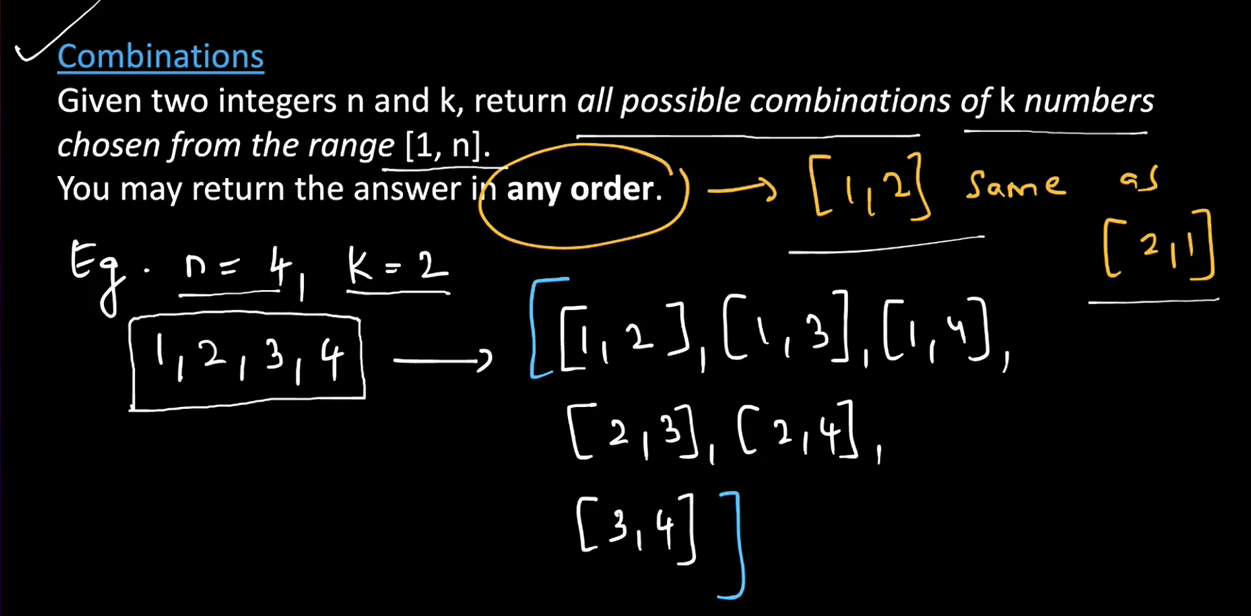 Combinations
Given two integers n and k, return all possible combinations of k numbers
chosen from the range [1, n].
You may return the answer in any order. → [1,2] same as
[2,1]
Eg. n = 4, k = 2
1, 2, 3, 4 → [[1, 2], [1, 3], [1, 4],
[2, 3], [2, 4],
[3, 4]]